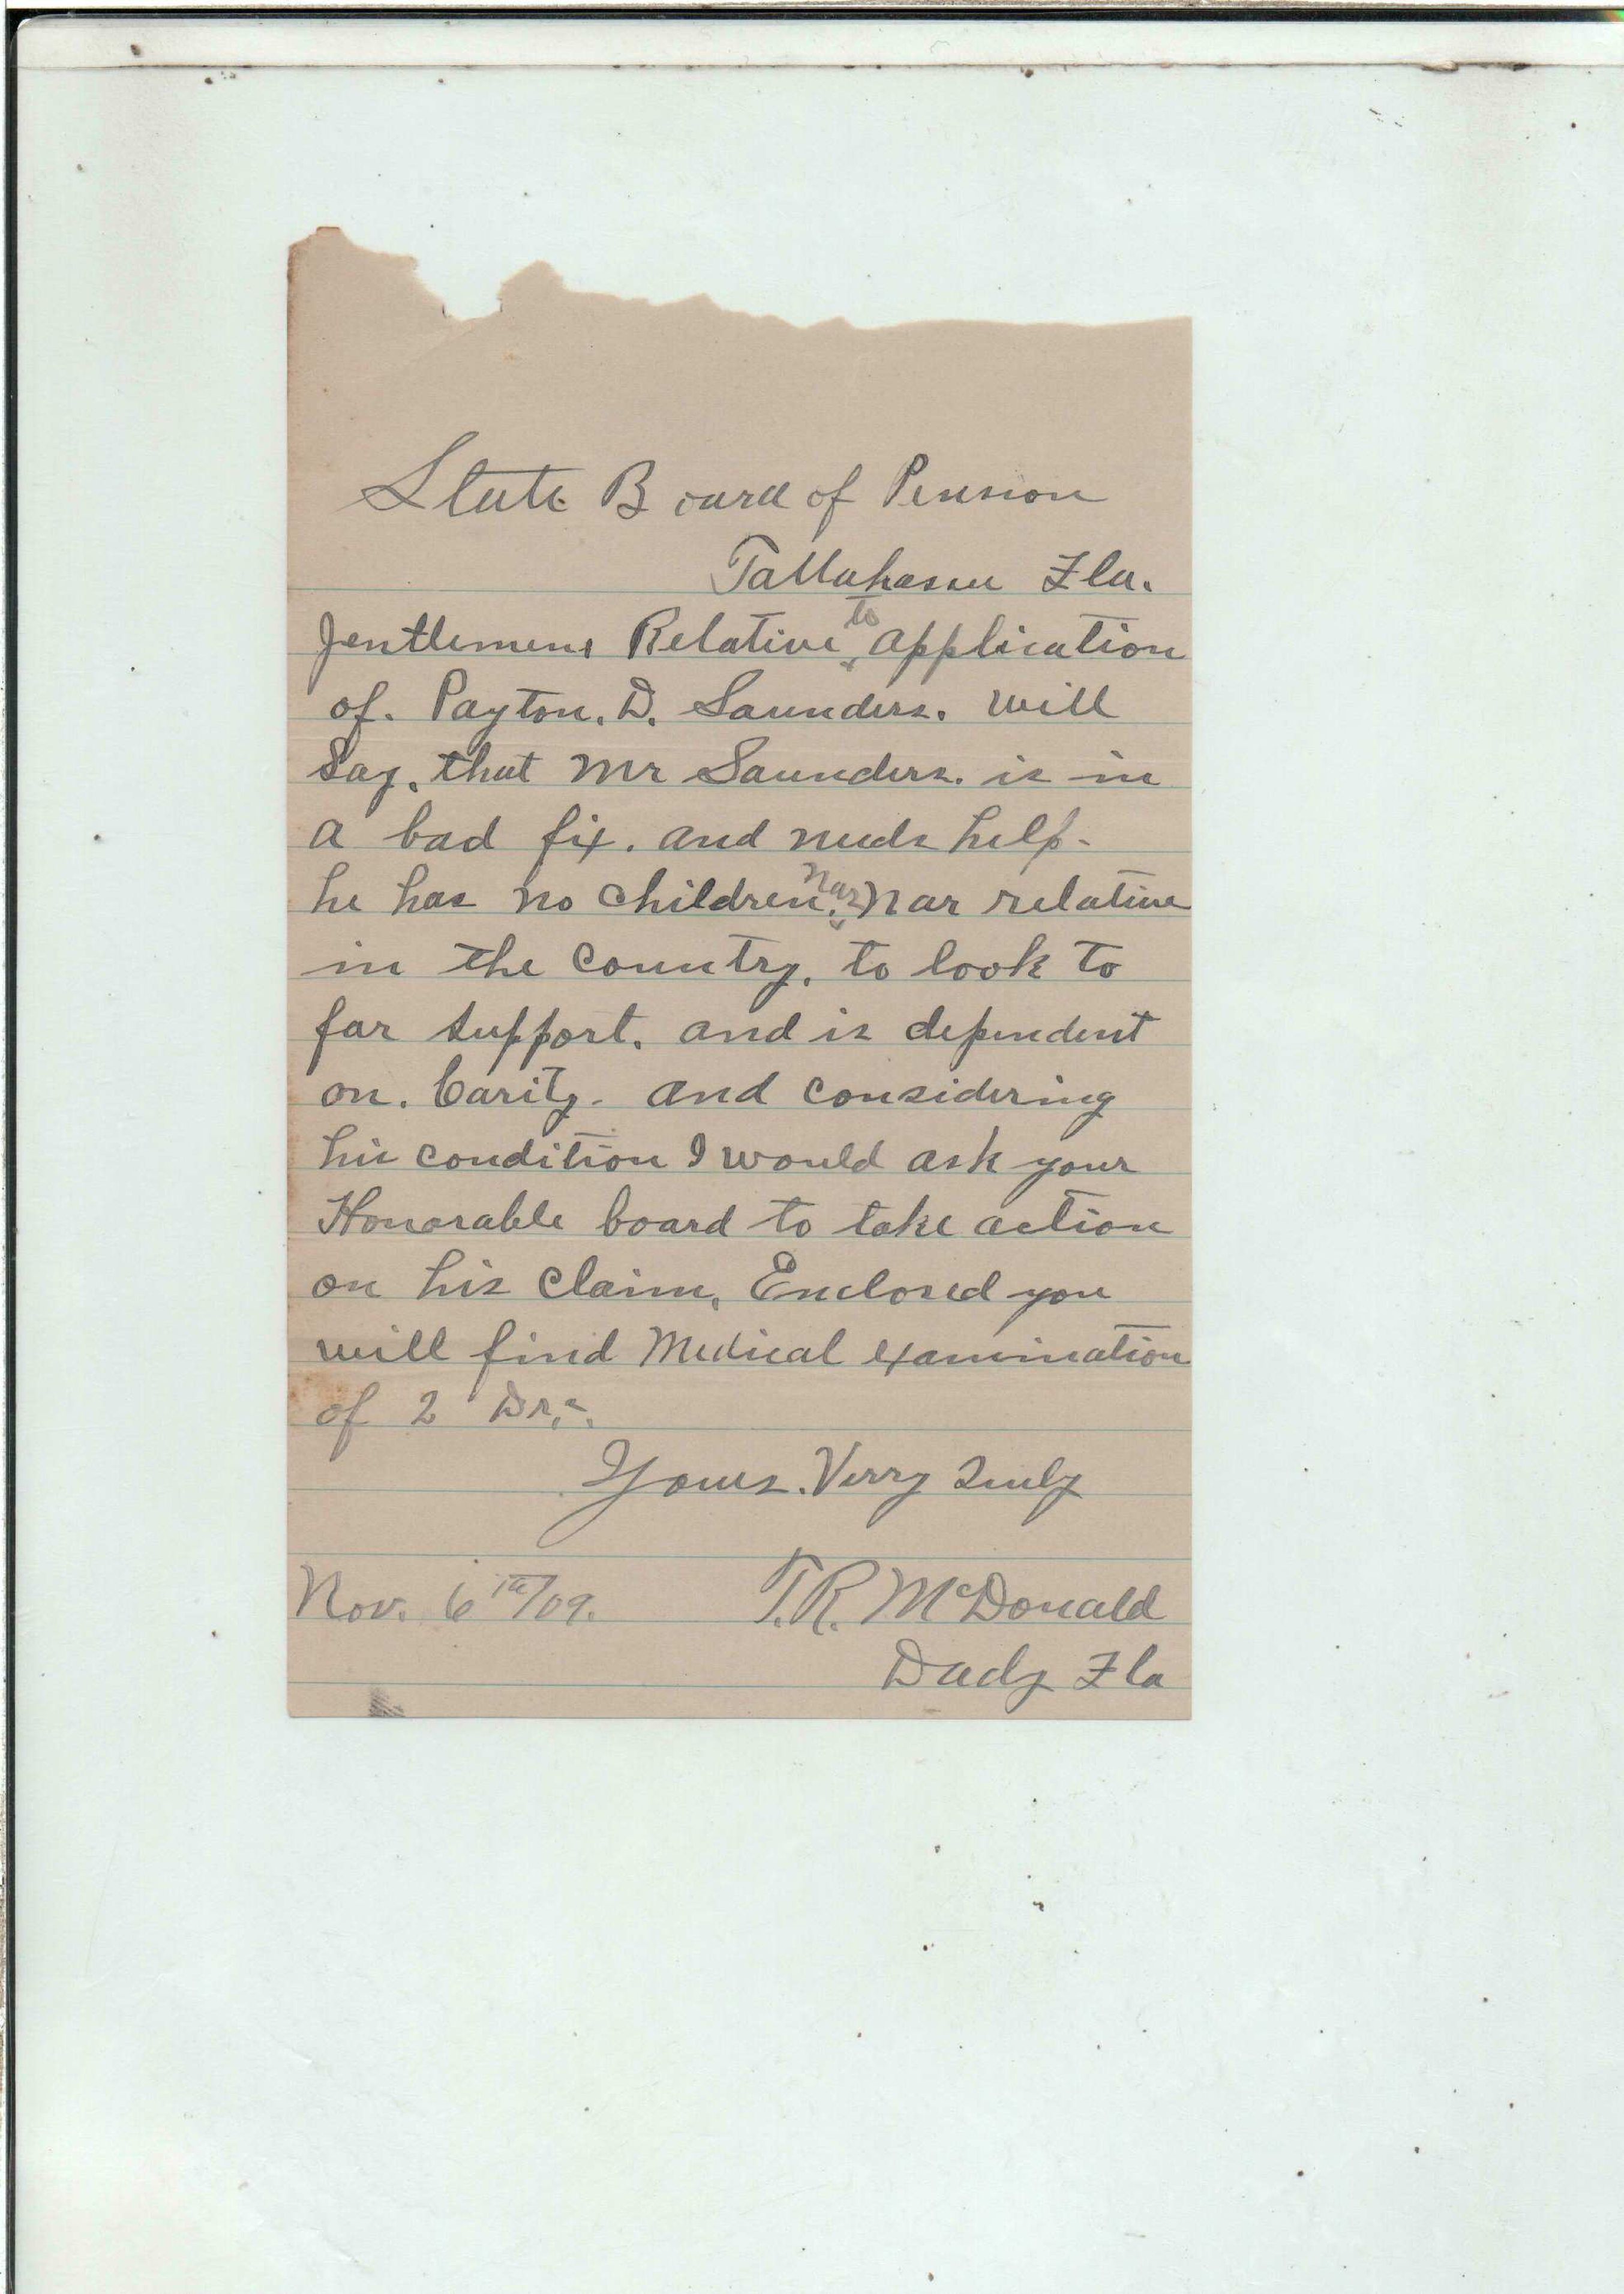 State Board of Pension
Tallahassee Fla.
Gentlemens Relative to application
of. Payton. D. Saunders. will
Say, that Mr Saunders. is in
a bad fix. and needs help-
he has no children. nar nar relative
in the Country, to look to
far support. and is dependent
on. Carity. and considering
his condition I would ask your
Honorable board to take action
on his claim, Enclosed you
will find Medical examination
of 2 Drs.
Yours. Verry Truly
Nov. 6th/09. T.R. McDonald
Dady Fla